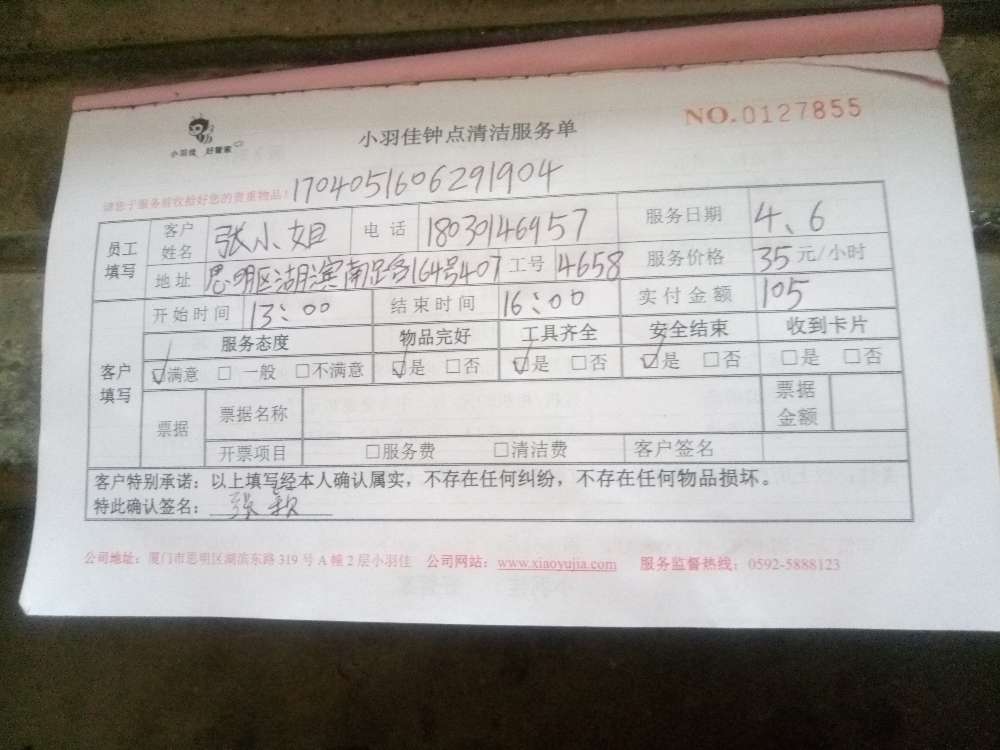 小羽佳 好管家
小羽佳钟点清洁服务单
NO.0127855
请您于服务前收拾好您的贵重物品！1704051606291904
员工填写 客户姓名 张小姐 电话 18030146957 服务日期 4、6
地址 思明区湖滨南路164号407 工号 4658 服务价格 35元/小时
客户填写 开始时间 13：00 结束时间 16：00 实付金额 105
服务态度 物品完好 工具齐全 安全结束 收到卡片
☑满意 □一般 □不满意 ☑是 □否 ☑是 □否 ☑是 □否 □是 □否
票据 票据名称 票据金额
开票项目 □服务费 □清洁费 客户签名
客户特别承诺：以上填写经本人确认属实，不存在任何纠纷，不存在任何物品损坏。
特此确认签名：张
公司地址：厦门市思明区湖滨东路319号A幢2层小羽佳 公司网站：www.xiaoyujia.com 服务监督热线：0592-5888123